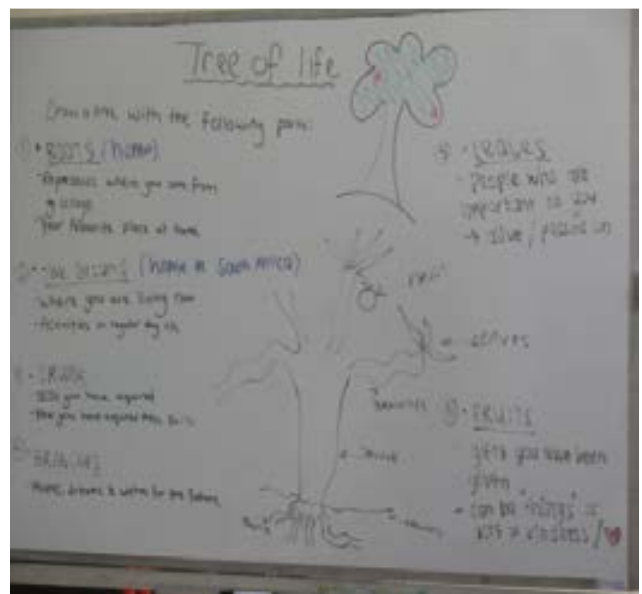 Tree of life
Draw a tree with the following parts:
① • ROOTS (home)
- Represents where you come from
Your favorite place at home
(home in South Africa)
- where you are living now
- Activities in regular day
- TRUNK
- skills you have acquired
- How you have acquired these skills
BRANCHES
Hopes, dreams & wishes for the future
• LEAVES
- People who are
important to you
→ alive / passed on
fruit
leaves
Branches
trunk
Roots
ground
• FRUITS
gifts you have been
given
- can be "things" or
acts of kindness /